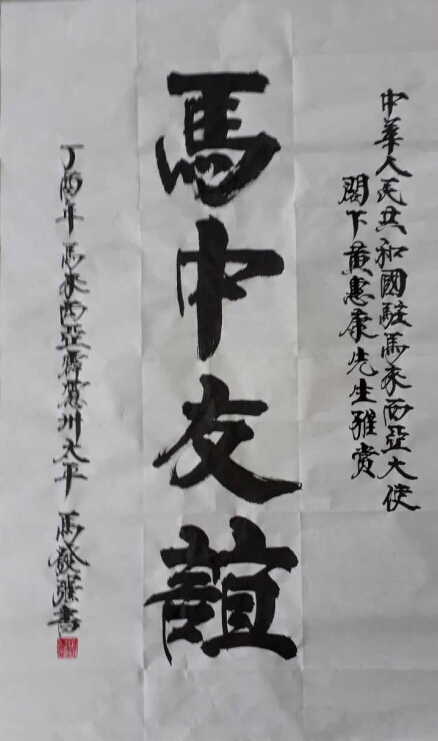 中華人民共和國駐馬來西亞大使
閣下黄惠康先生雅賞
馬中友誼
丁酉年 馬來西亞霹靂州太平 馬發強書